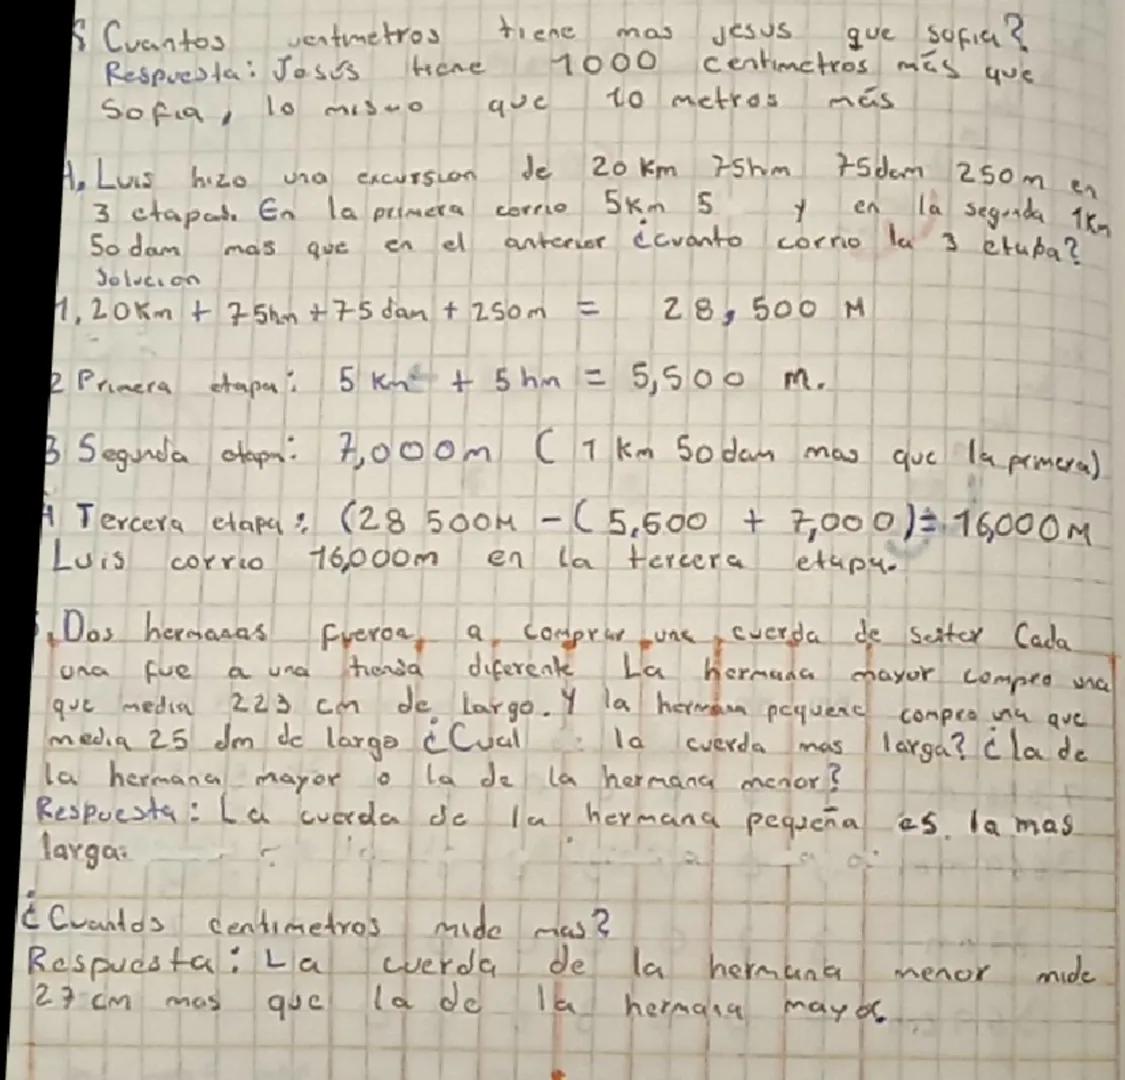 Cuantos centimetros tiene mas Jesus que sofia?
Respuesta: Jesús tiene 1000 centimetros más que
Sofia, lo mismo que 10 metros más
4. Luis hizo una excursion de 20 Km 75hm 75dam 250m en
3 etapas. En la primera corrio 5Km 5 y en la segunda 1Km
50 dam mas que en el anterior ¿cuanto corrio la 3 etapa?
Solucion
1, 20Km + 75hm + 75 dam + 250m = 28,500 M
2 Primera etapa: 5 Km + 5 hm = 5,500 m.
3 Segunda etapa: 7,000m ( 1 Km 50 dam mas que la primera)
4 Tercera etapa: (28 500M - ( 5,500 + 7,000) = 16,000M
Luis corrio 16,000m en la tercera etapa.
, Dos hermanas fueron a comprar una cuerda de Cada
una fue a una tienda diferente La hermana mayor compro una
que media 223 cm de largo. Y la hermana pequeña compro una que
media 25 dm de largo ¿Cual la cuerda mas larga? ¿la de
la hermana mayor o la de la hermana menor?
Respuesta: La cuerda de la hermana pequeña es la mas
larga.
¿Cuantos centimetros mide mas?
Respuesta: La cuerda de la hermana menor mide
27 cm mas que la de la hermana mayor